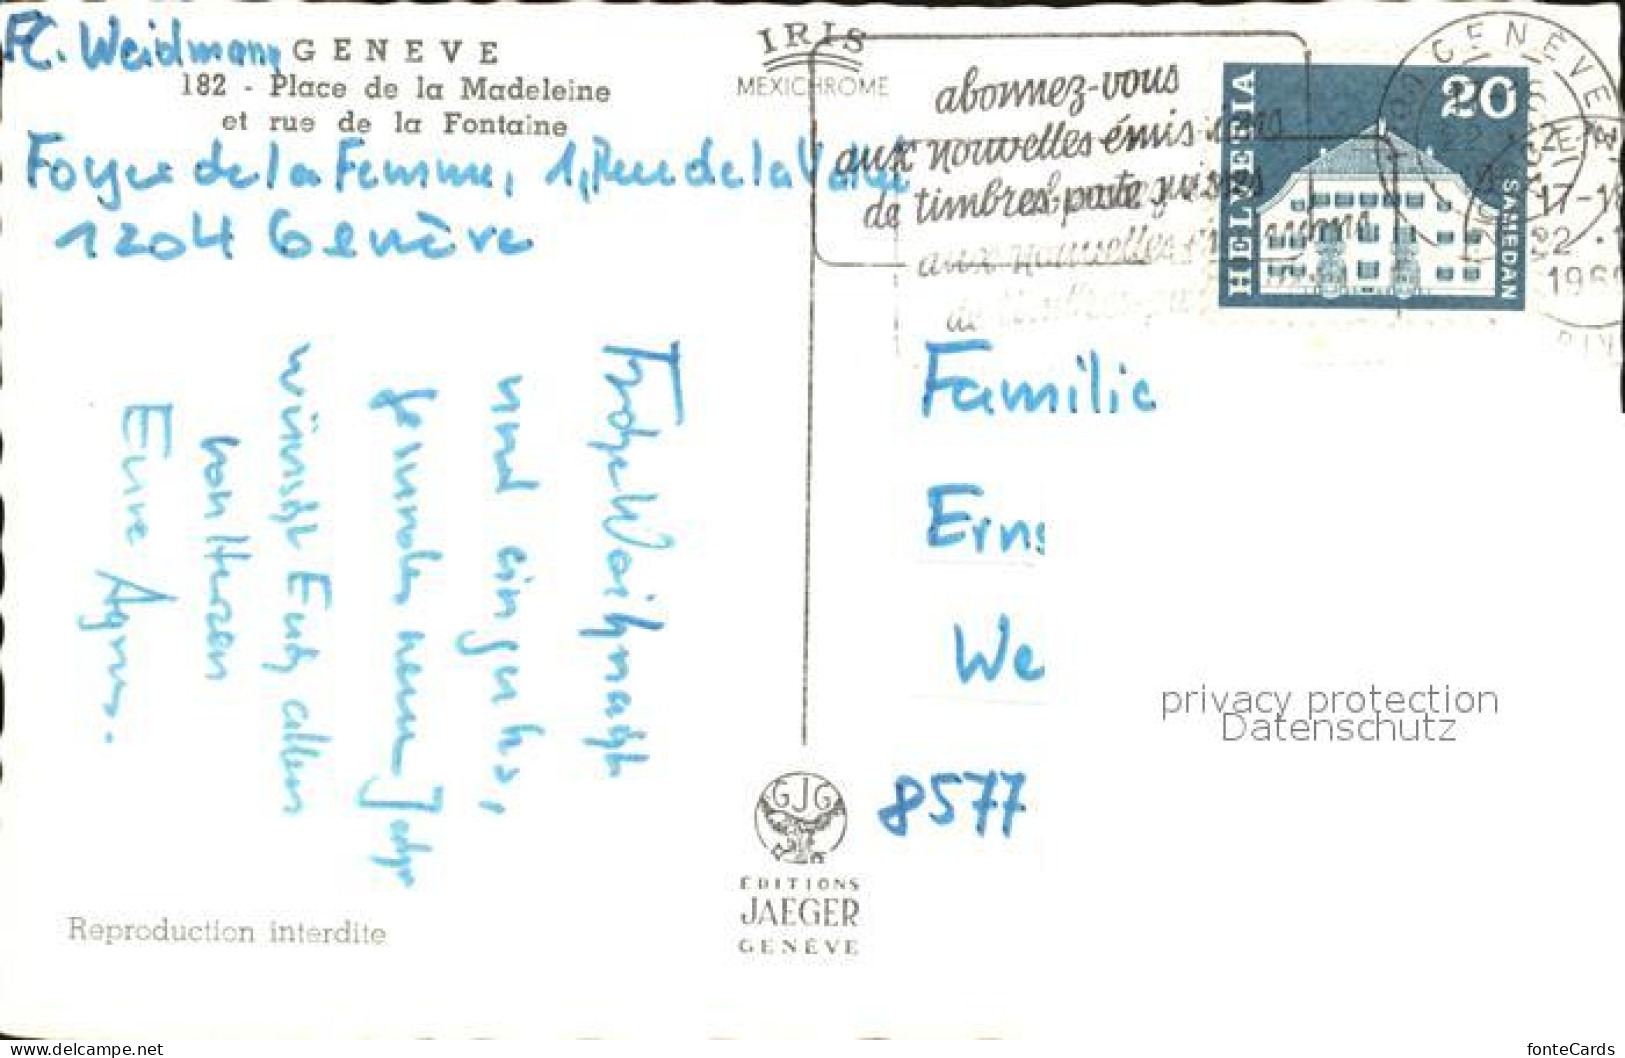 A. Weidmann
GENEVE
182 - Place de la Madeleine
et rue de la Fontaine
Foyer de la Femme, 1, Rue de la Vallée
1204 Genève
Frohe Weihnacht
und ein gutes,
gesundes neues Jahr
wünscht Euch allen
von Herzen
Eure Agnes.
Reproduction interdite
IRIS
MEXICHROME
abonnez-vous
aux nouvelles émissions
de timbres-poste suisses
aux nouvelles
de
HELVETIA
20
SAMEDAN
GENÈVE
17-18
22
196
Familie
Erns
We
8577
GJG
ÉDITIONS
JAEGER
GENÈVE
privacy protection
Datenschutz
www.delcampe.net
fonteCards